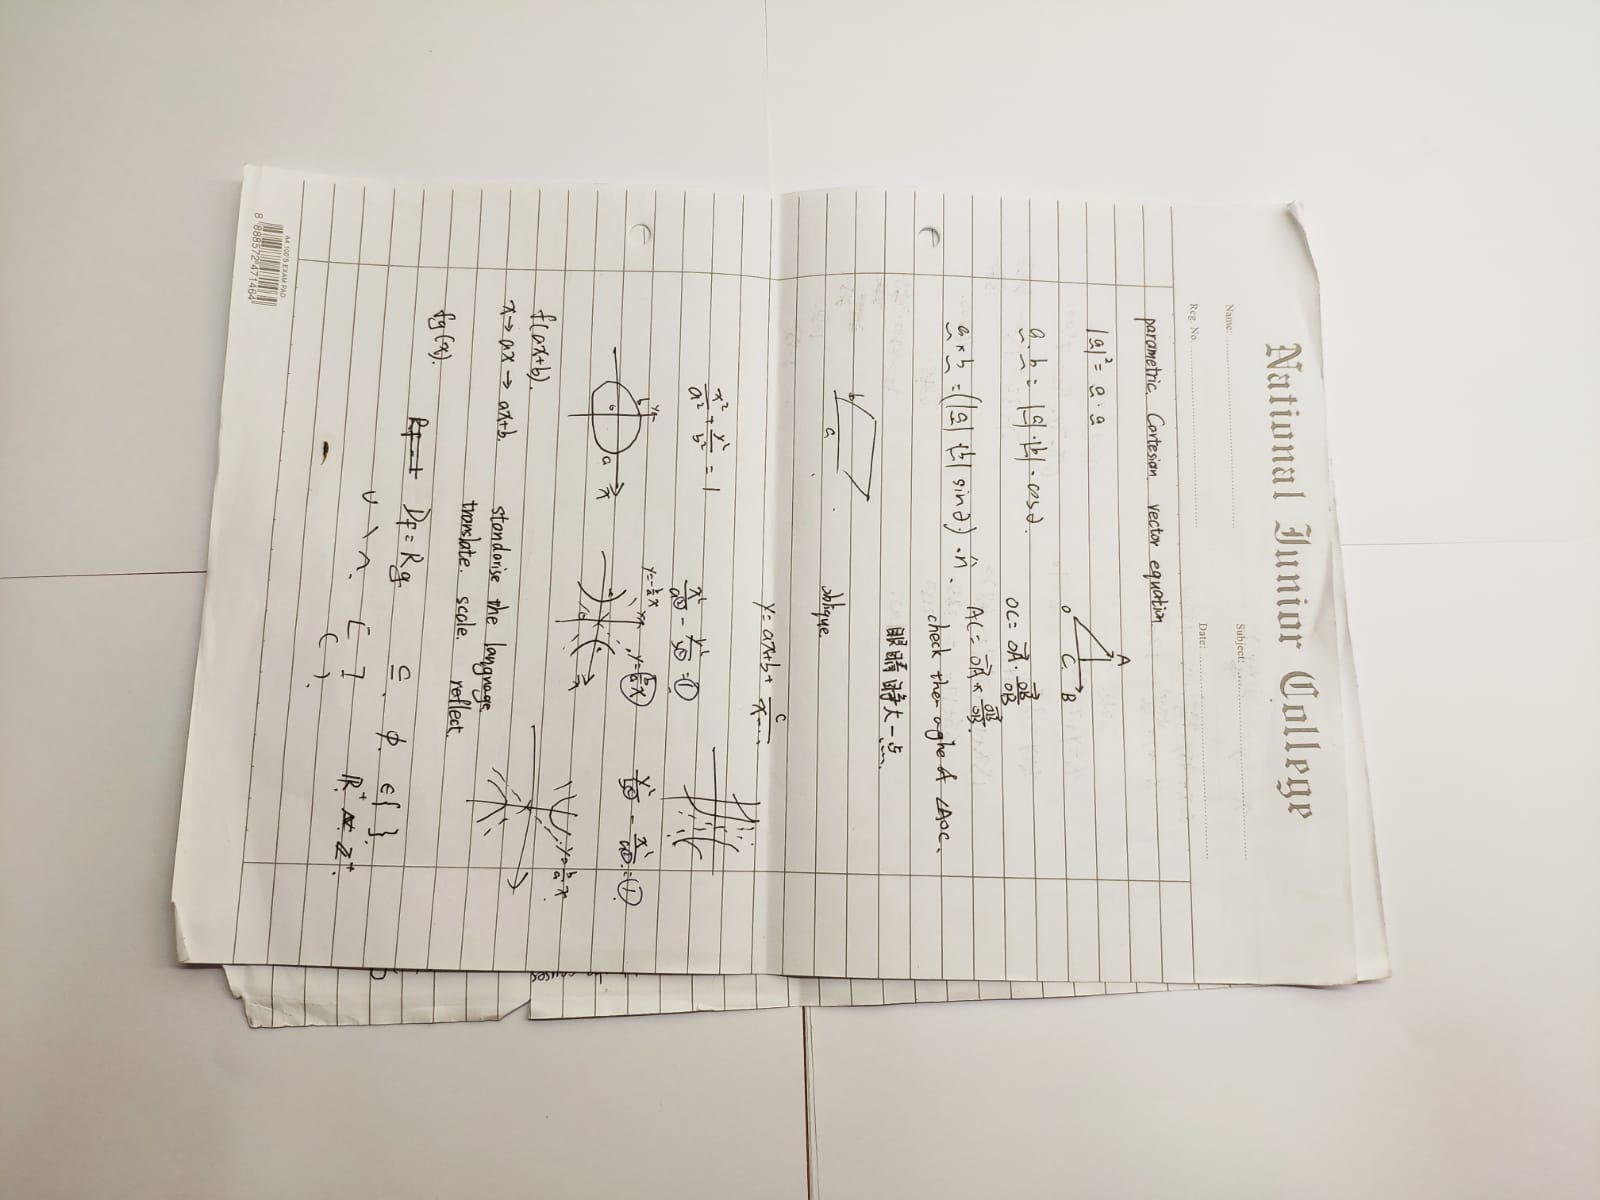 National Junior College
Name:
Subject:
Reg. No.
Date:
parametric. Cartesian. vector equation
|a|² = a · a
A
O
C
B
a · b = |a| · |b| · cos∂.
OC = OA · OB/OB
a × b = (|a| · |b| sin∂) · n̂.
AC = OA × OB/OB.
check the A ∠AOC.
眼睛 大一点
b
a
oblique
y = ax + b + c/x
x²/a² + y²/b² = 1
x²/a² - y²/b² = 1
y²/b² - x²/a² = 1
y
b
o
a
x
y = -b/a x
y = b/a x
x
y = b/a x.
f(ax+b).
x → ax → ax+b.
standarise the language
translate. scale. reflect.
fg(x).
Df = Rg
⊆
∅.
∈{ }.
∪ \ ∩.
[ ]
( ).
R⁺ Z⁺.
A4 100'S EXAM PAD
8 888572 471464